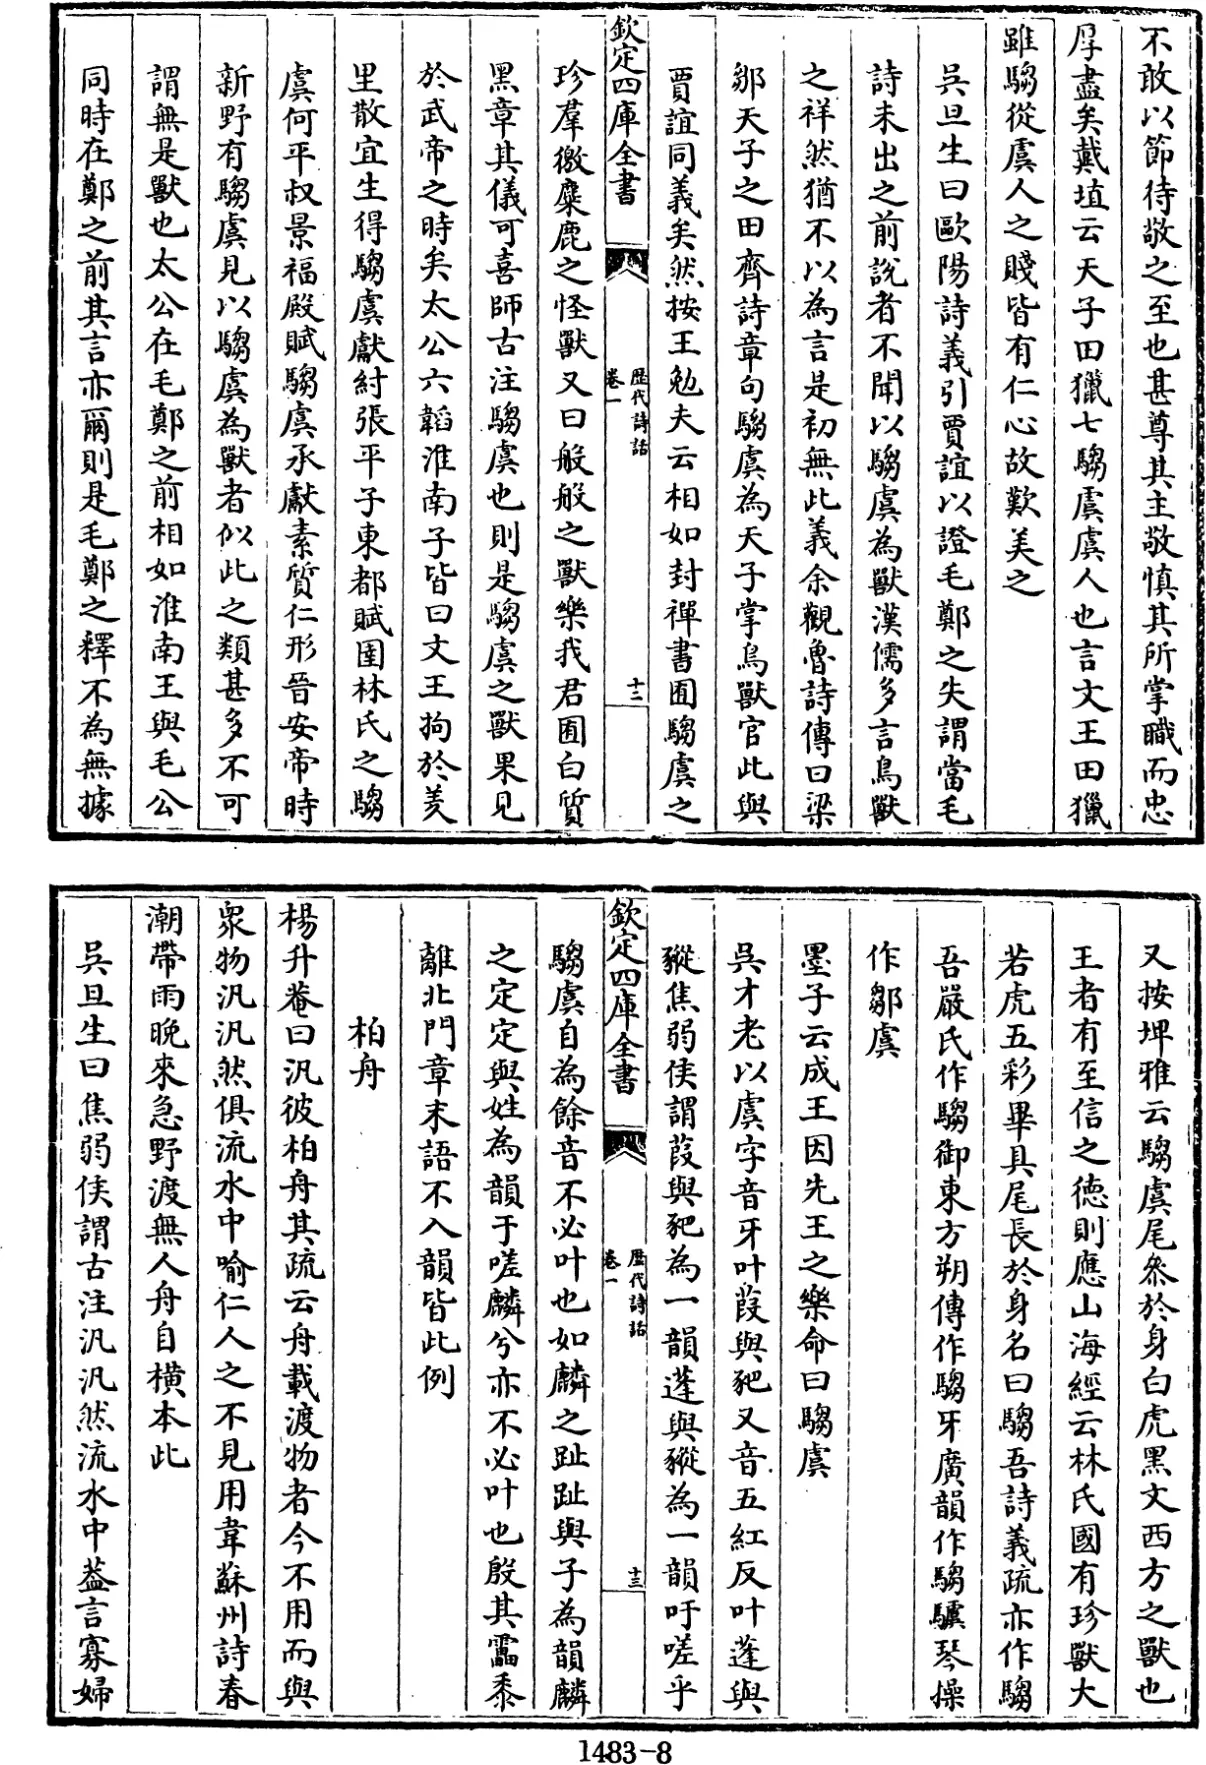 不敢以節待敬之至也甚尊其主敬慎其所掌職而忠
厚盡矣戴埴云天子田獵七騶虞虞人也言文王田獵
雖騶從虞人之賤皆有仁心故歎美之
吳旦生曰歐陽詩義引賈誼以證毛鄭之失謂當毛
詩未出之前說者不聞以騶虞為獸漢儒多言鳥獸
之祥然猶不以為言是初無此義余觀魯詩傳曰梁
鄒天子之田齊詩章句騶虞為天子掌鳥獸官此與
賈誼同義矣然按王勉夫云相如封禪書囿騶虞之
欽定四庫全書
歷代詩話
卷一
十二
珍羣徼麋鹿之怪獸又曰般般之獸樂我君囿白質
黑章其儀可喜師古注騶虞也則是騶虞之獸果見
於武帝之時矣太公六韜淮南子皆曰文王拘於羑
里散宜生得騶虞獻紂張平子東都賦圉林氏之騶
虞何平叔景福殿賦騶虞承獻素質仁形晉安帝時
新野有騶虞見以騶虞為獸者似此之類甚多不可
謂無是獸也太公在毛鄭之前相如淮南王與毛公
同時在鄭之前其言亦爾則是毛鄭之釋不為無據
又按埤雅云騶虞尾參於身白虎黑文西方之獸也
王者有至信之德則應山海經云林氏國有珍獸大
若虎五彩畢具尾長於身名曰騶吾詩義疏亦作騶
吾嚴氏作騶御東方朔傳作騶牙廣韻作騶驉琴操
作鄒虞
墨子云成王因先王之樂命曰騶虞
吳才老以虞字音牙叶葭與豝又音五紅反叶蓬與
豵焦弱侯謂葭與豝為一韻蓬與豵為一韻吁嗟乎
欽定四庫全書
歷代詩話
卷一
十三
騶虞自為餘音不必叶也如麟之趾趾與子為韻麟
之定定與姓為韻于嗟麟兮亦不必叶也殷其靁黍
離北門章末語不入韻皆此例
柏舟
楊升菴曰汎彼柏舟其疏云舟載渡物者今不用而與
衆物汎汎然俱流水中喻仁人之不見用韋蘇州詩春
潮帶雨晚來急野渡無人舟自橫本此
吳旦生曰焦弱侯謂古注汎汎然流水中葢言寡婦
1483-8